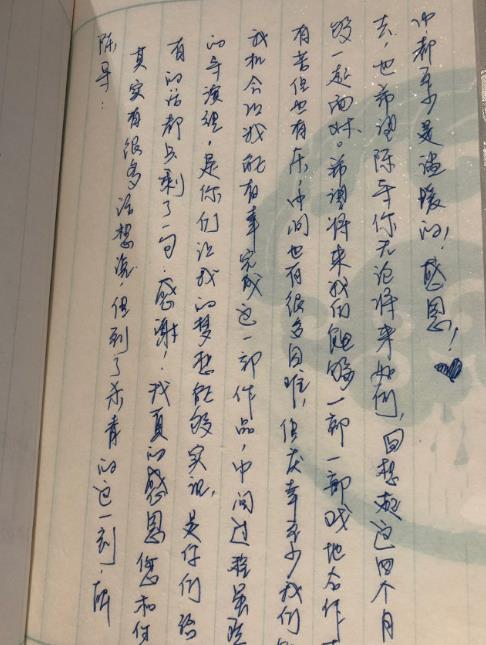 陈导:
其实有很多话想说,但到了杀青的这一刻,所
有的话都只剩了一句:感谢!我真的感恩您和你
的导演组,是你们让我的梦想能够实现,是你们给
我机会让我能有幸完成这一部作品,中间过程虽然
有苦但也有乐,中间也有很多困难,但庆幸至少我们
够一起面对。希望将来我们能够一部一部戏地合作
去,也希望陈导你无论将来如何,回想起这四个月
中都至少是温暖的!感恩!